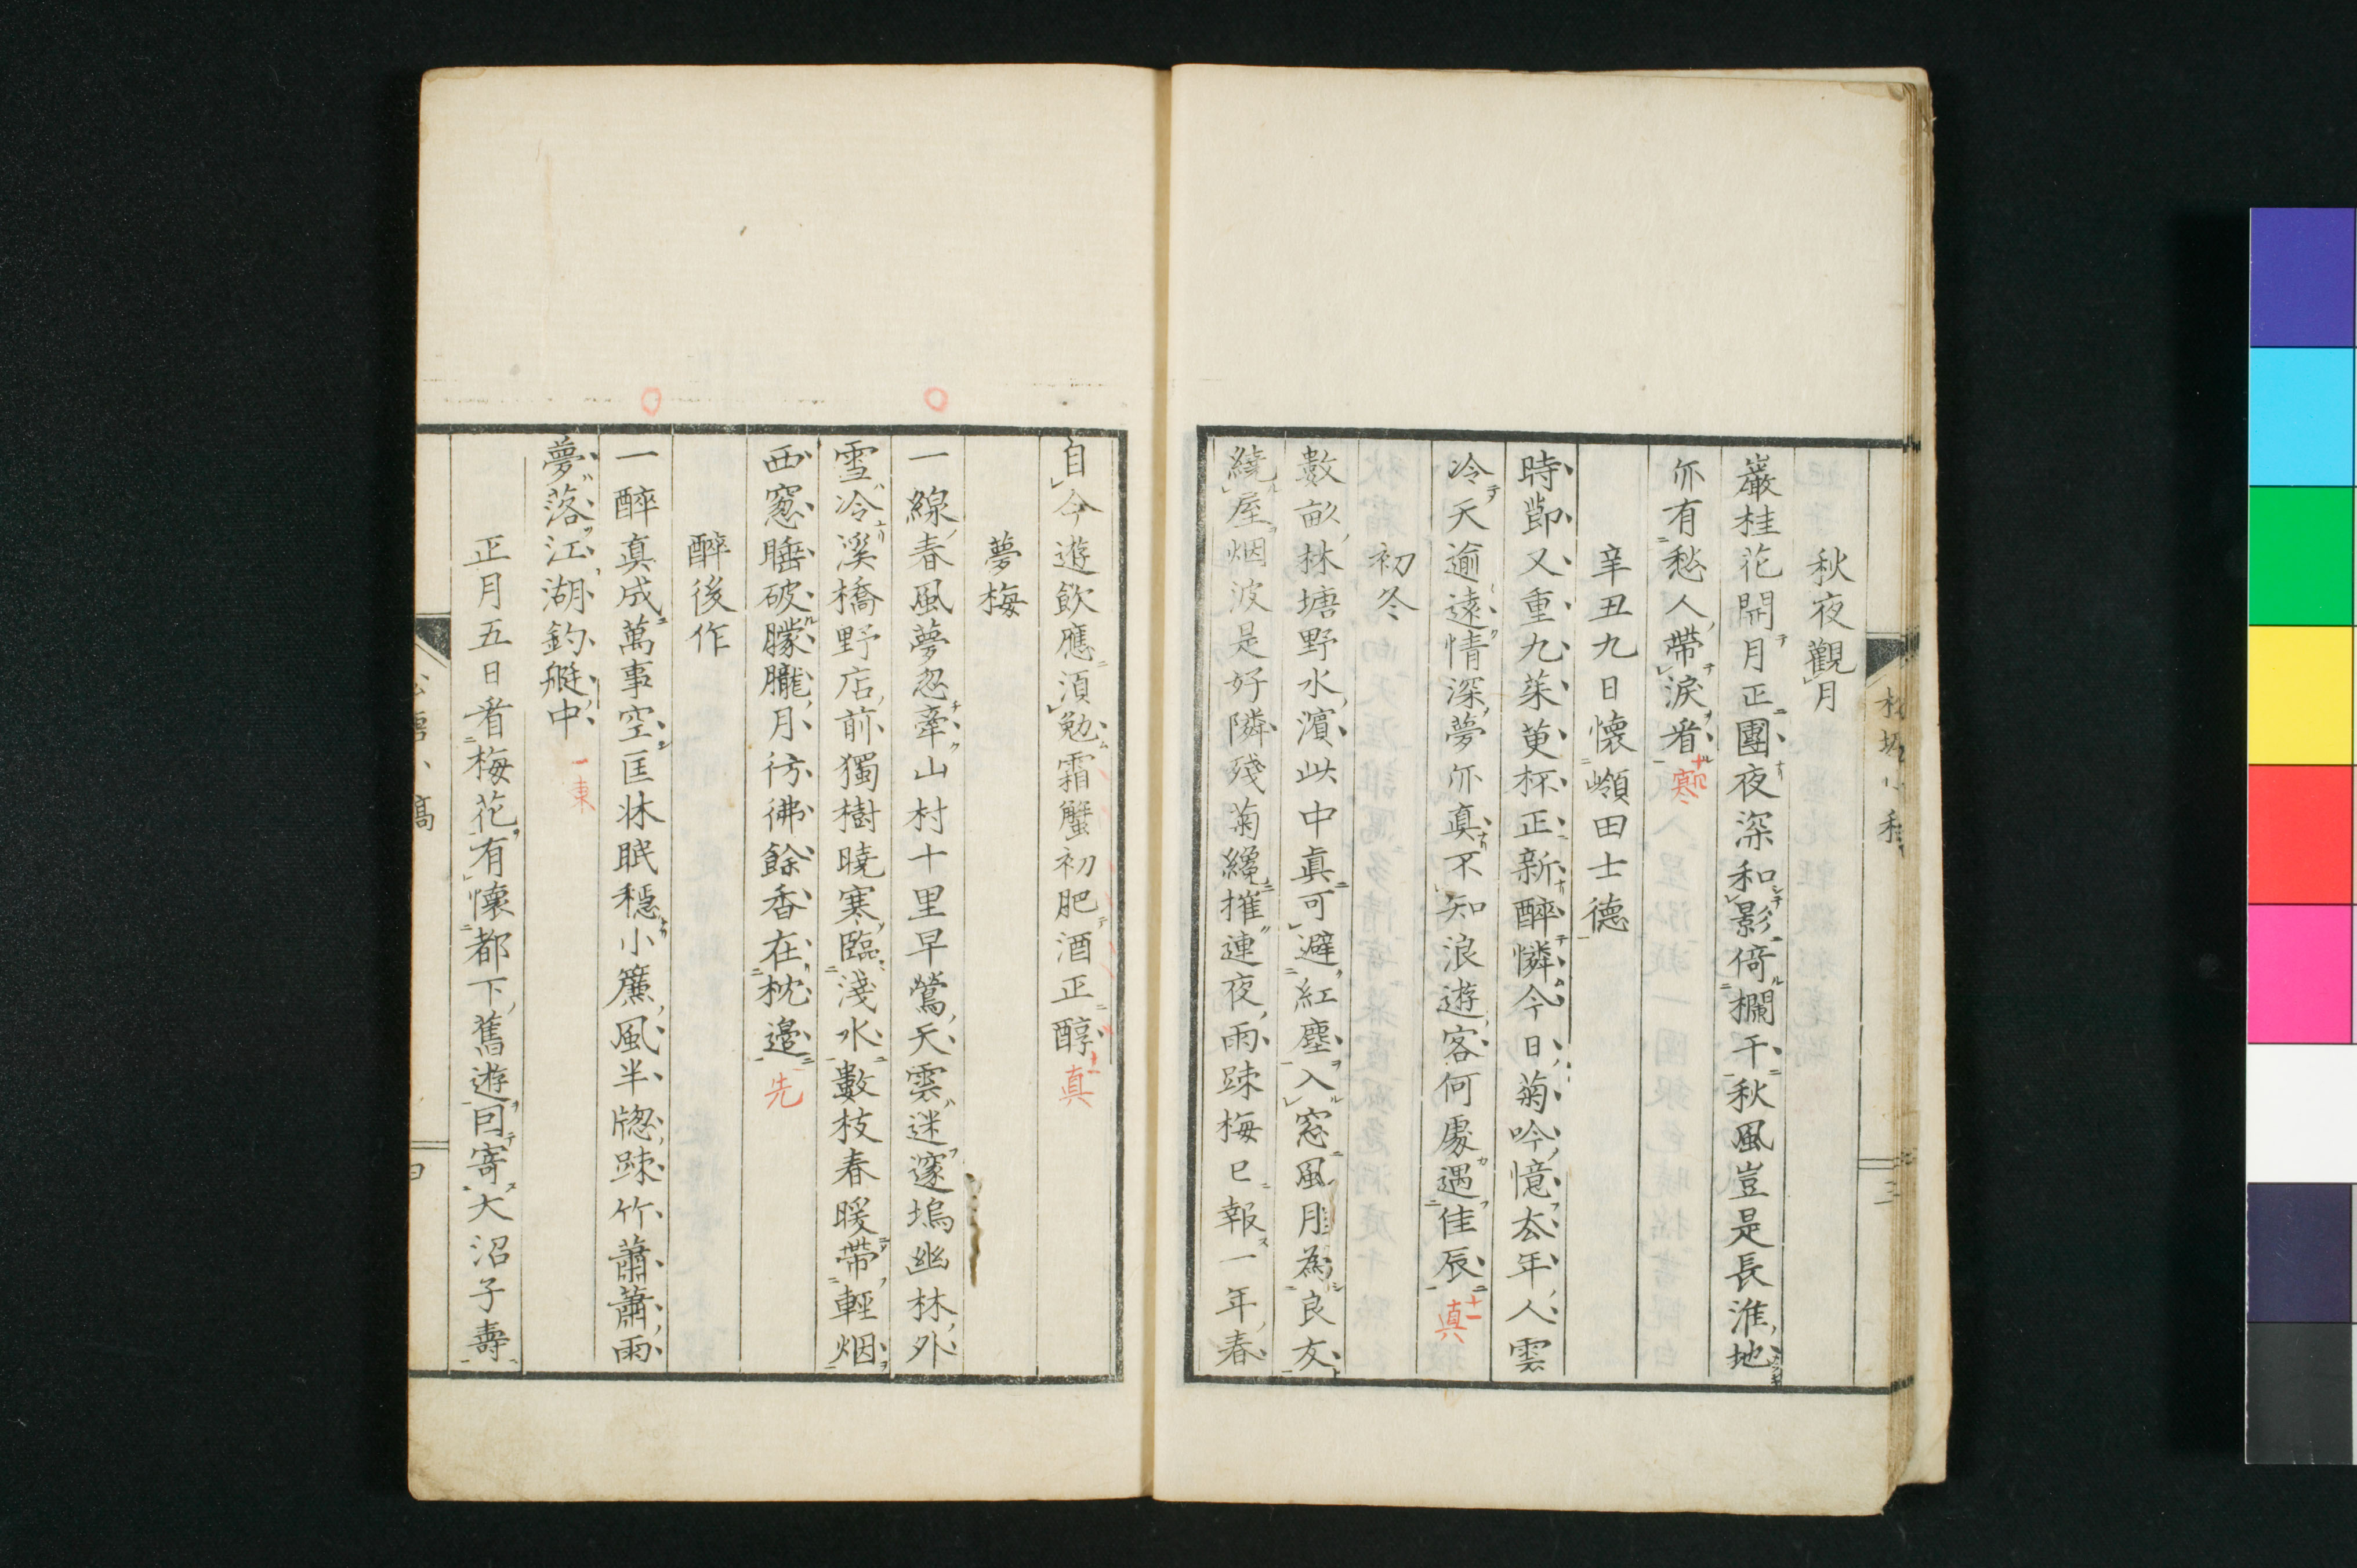 秋夜觀月
巖桂花開月正團夜深和影倚欄干秋風豈是長淮地
亦有愁人帶淚看
十四寒
辛丑九日懷嶺田士德
時節又重九茱萸杯正新醉憐今日菊吟憶去年人雲
冷天逾遠情深夢亦真不知浪遊客何處遇佳辰
十一真
初冬
數畝林塘野水濱此中真可避紅塵入窓風月為良友
繞屋烟波是好隣殘菊纔摧連夜雨踈梅已報一年春
自今遊飲應須勉霜蟹初肥酒正醇
十一真
夢梅
一線春風夢忍牽山村十里早鶯天雲迷邃塢幽林外
雪冷溪橋野店前獨樹曉寒臨淺水數枝春暖帶輕烟
西窓睡破朦朧月彷彿餘香在枕邉
一先
醉後作
一醉真成萬事空匡牀眠穩小簾風半牕踈竹蕭蕭雨
夢落江湖釣艇中
一東
正月五日看梅花有懷都下舊遊因寄大沼子壽